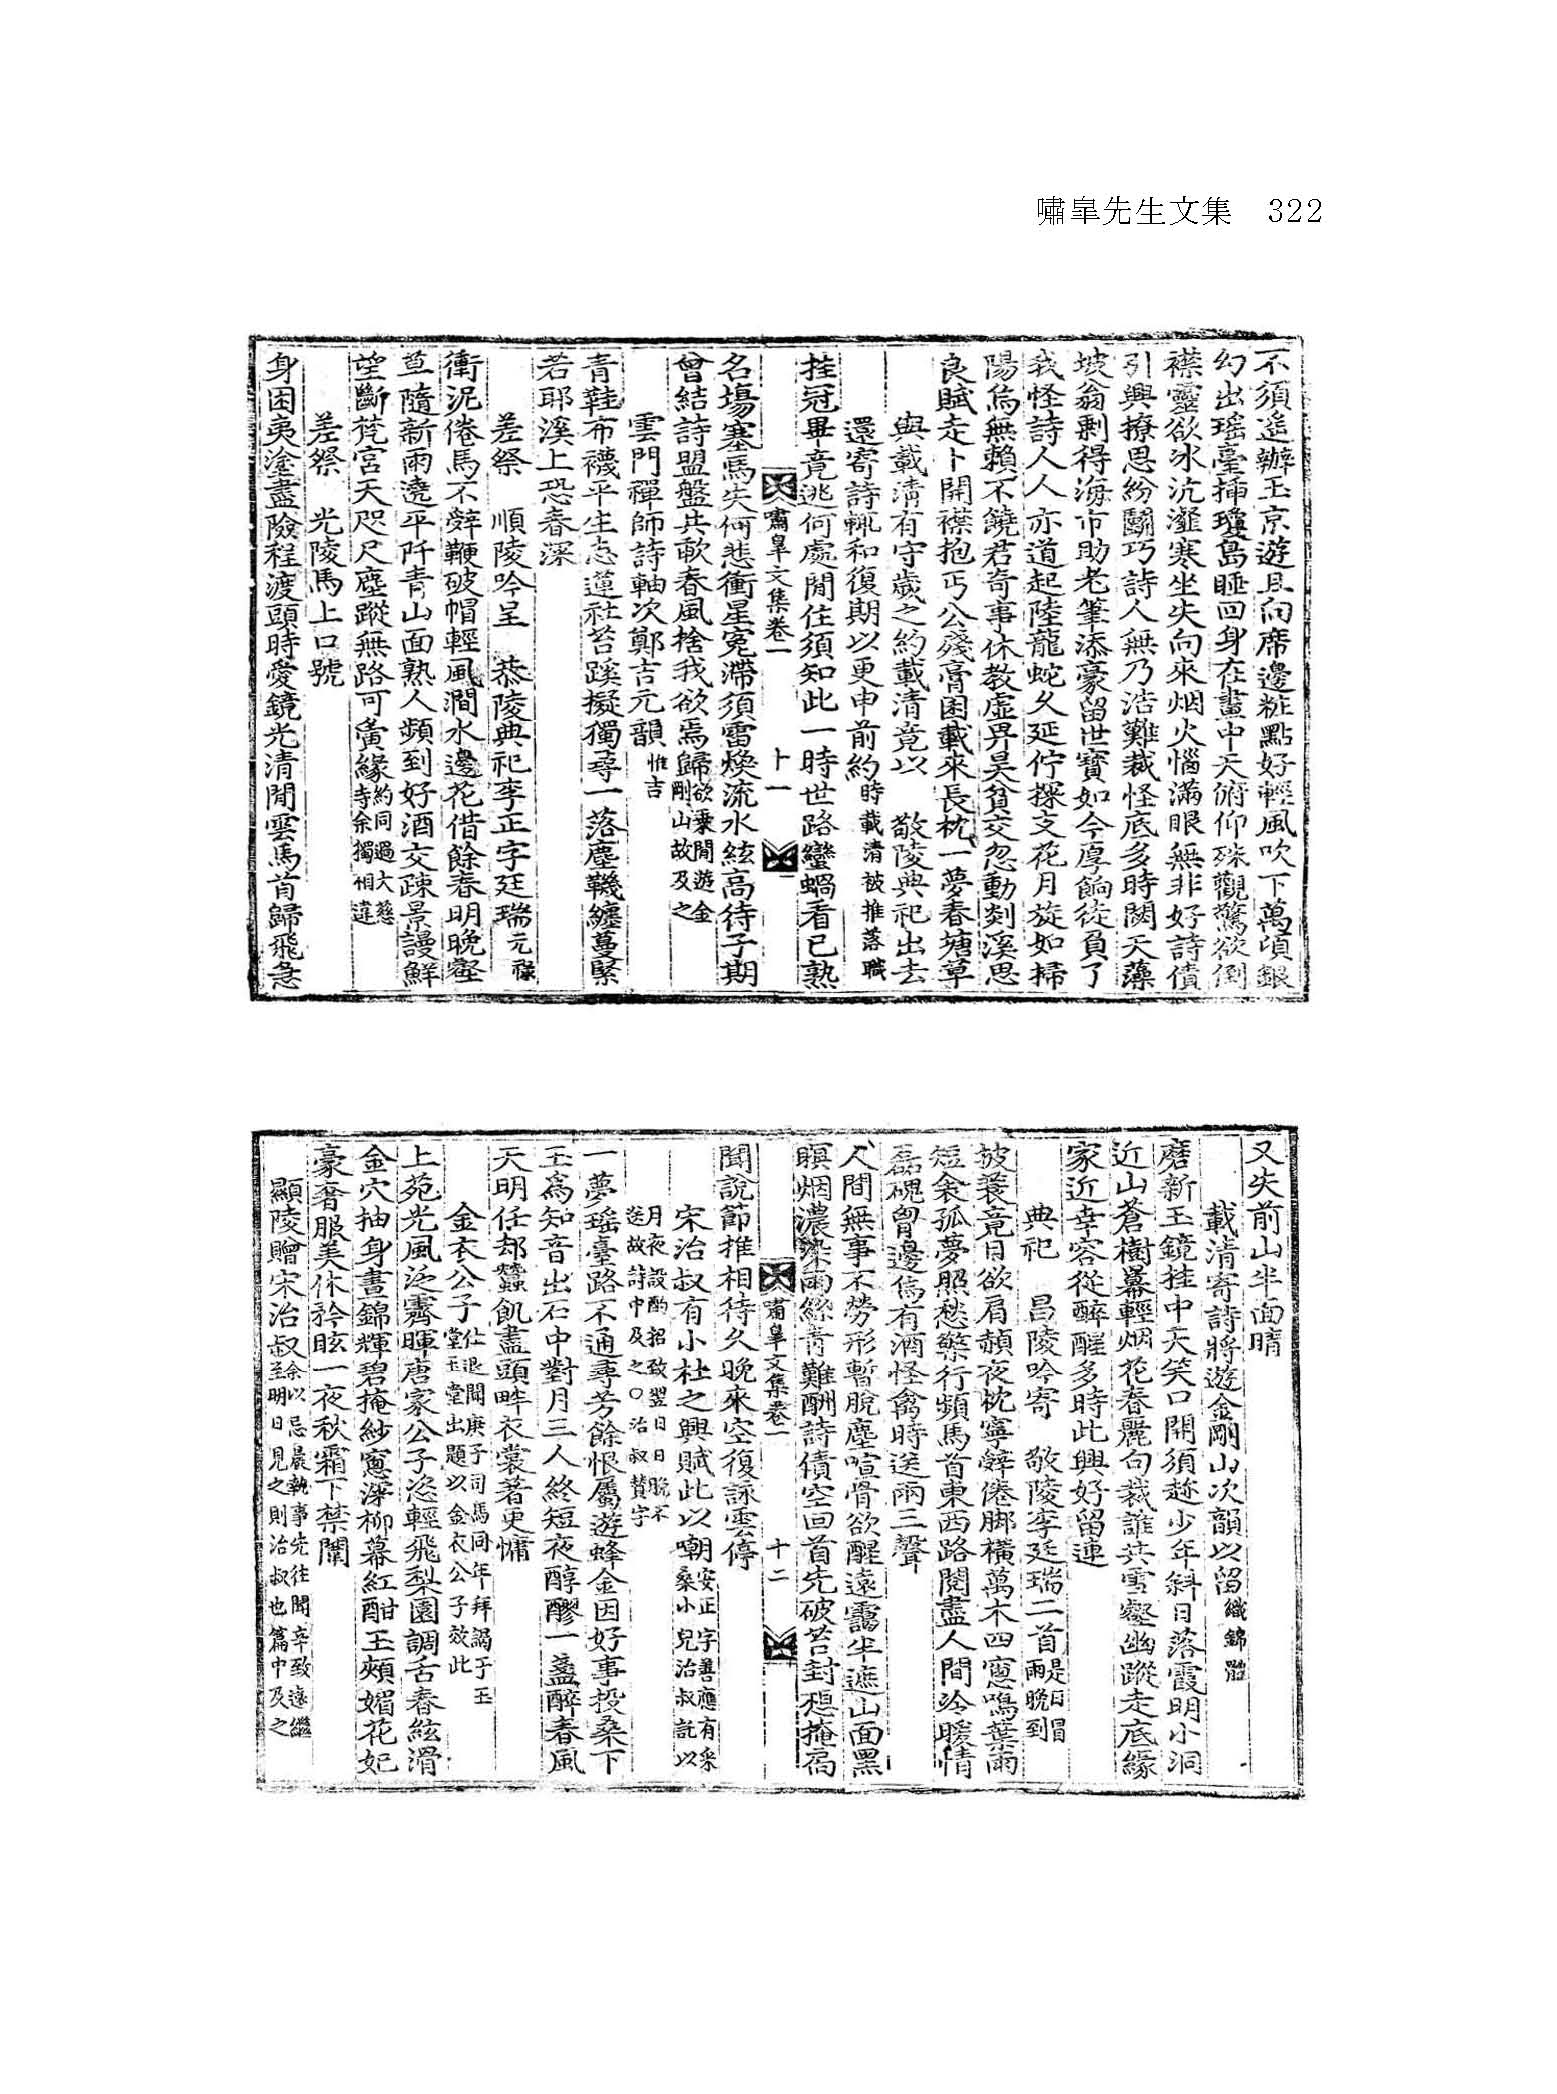 嘯皐先生文集 322
不須遙辦玉京遊且向席邊粧點好輕風吹下萬頃銀
幻出瑶臺揷瓊島睡回身在畫中天俯仰殊觀驚欲倒
襟靈欲冰沆瀣寒坐失向來烟火惱滿眼無非好詩債
引興撩思紛鬪巧詩人無乃浩難裁怪底多時閟天藻
坡翁剩得海市助老筆添豪留世寶如今厚餉徒負了
我怪詩人人亦道起陸龍蛇久延佇探支花月旋如掃
陽烏無賴不饒君奇事休教虛畀昊貧交忽動剡溪思
良賦走卜開襟抱丐公殘膏困載來長枕一夢春塘草
與載淸有守歲之約載淸竟以 敬陵典祀出去
還寄詩輒和復期以更申前約時載淸被推落職
挂冠畢竟逃何處閒住須知此一時世路蠻蝸看已熟
嘯皐文集卷一 十一
名塲塞馬失何悲衝星寃滯須雷煥流水絃高待子期
曾結詩盟盤共歃春風捨我欲焉歸欲乘閒遊金剛山故及之
雲門禪師詩軸次鄭吉元韻惟吉
青鞋布襪平生志蓮社苔蹊擬獨尋一落塵鞿纏蔓緊
若耶溪上恐春深
差祭 順陵吟呈 恭陵典祀李正字廷瑞元祿
衝泥倦馬不辭鞭破帽輕風澗水邊花借餘春明晩壑
草隨新雨遶平阡青山面熟人頻到好酒交踈景謾鮮
望斷梵宮天咫尺塵蹤無路可夤緣約同過大慈寺余獨相違
差祭 光陵馬上口號
身困夷塗盡險程渡頭時愛鏡光淸閒雲馬首歸飛急
又失前山半面晴
載淸寄詩將遊金剛山次韻以留織錦體
磨新玉鏡挂中天笑口開須趂少年斜日落霞明小洞
近山蒼樹羃輕烟花春麗句裁誰共雪壑幽蹤走底緣
家近幸容從醉醒多時此興好留連
典祀 昌陵吟寄 敬陵李廷瑞二首是日冒雨晩到
披蓑竟日欲肩頳夜枕寧辭倦脚橫萬木四窓鳴葉雨
短衾孤夢照愁檠行頻馬首東西路閱盡人間冷暖情
磊磈胷邊僞有酒怪禽時送兩三聲
人間無事不勞形暫脫塵喧骨欲醒遠靄半遮山面黑
暝烟濃染雨絲青難酬詩債空回首先破苔封穩掩扃
嘯皐文集卷一 十二
聞說節推相待久晩來空復詠雲停
宋治叔有小杜之興賦此以嘲安正字善應有采桑小兒治叔託以
月夜設酌招致翌日日晩不送故詩中及之○治叔贊字
一夢瑶臺路不通尋芳餘恨屬遊蜂金因好事投桑下
玉爲知音出石中對月三人終短夜醇醪一盞醉春風
天明任却蠶飢盡頭畔衣裳著更慵
金衣公子仕退聞庚子司馬同年拜謁于玉堂玉堂出題以金衣公子效此
上苑光風泛霽暉唐家公子恣輕飛梨園調舌春絃滑
金穴抽身晝錦輝碧掩紗窓深柳幕紅酣玉頰媚花妃
豪奢服美休矜眩一夜秋霜下禁闈
顯陵贈宋治叔余以忌晨執事先往聞辛致遠繼至明日見之則治叔也篇中及之